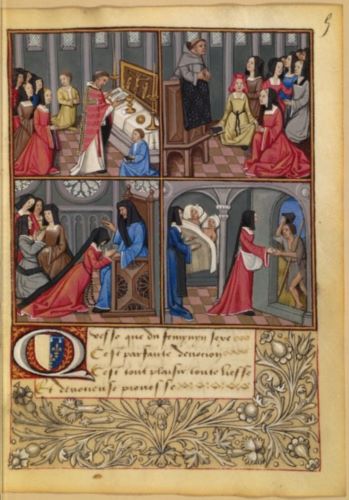 5
Qvesse que du femynyn sexe
Cest parfaite devocion
Cest tout plaisir toute liesse
Et devocieuse prouesse